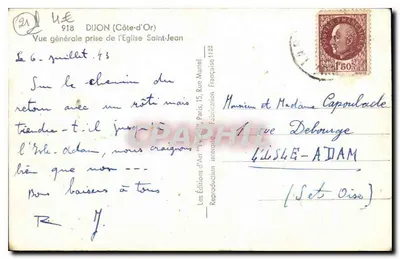 21
4€
918 DIJON (Côte-d'Or)
Vue générale prise de l'Eglise Saint-Jean
Le 6 juillet 43
Sur le chemin du
retour avec un rôti mais
tiendra-t-il jusqu'à
l'Isle-Adam, nous craignons
bien que non ---
Bons baisers à tous
R J
Les Editions d'Art "Yvon", Paris, 15, Rue Martel
Fabrication Française
1F50
Monsieur et Madame Capoulade
1 rue Debourge
L'ISLE-ADAM
(Set Oise)
CPARAMA